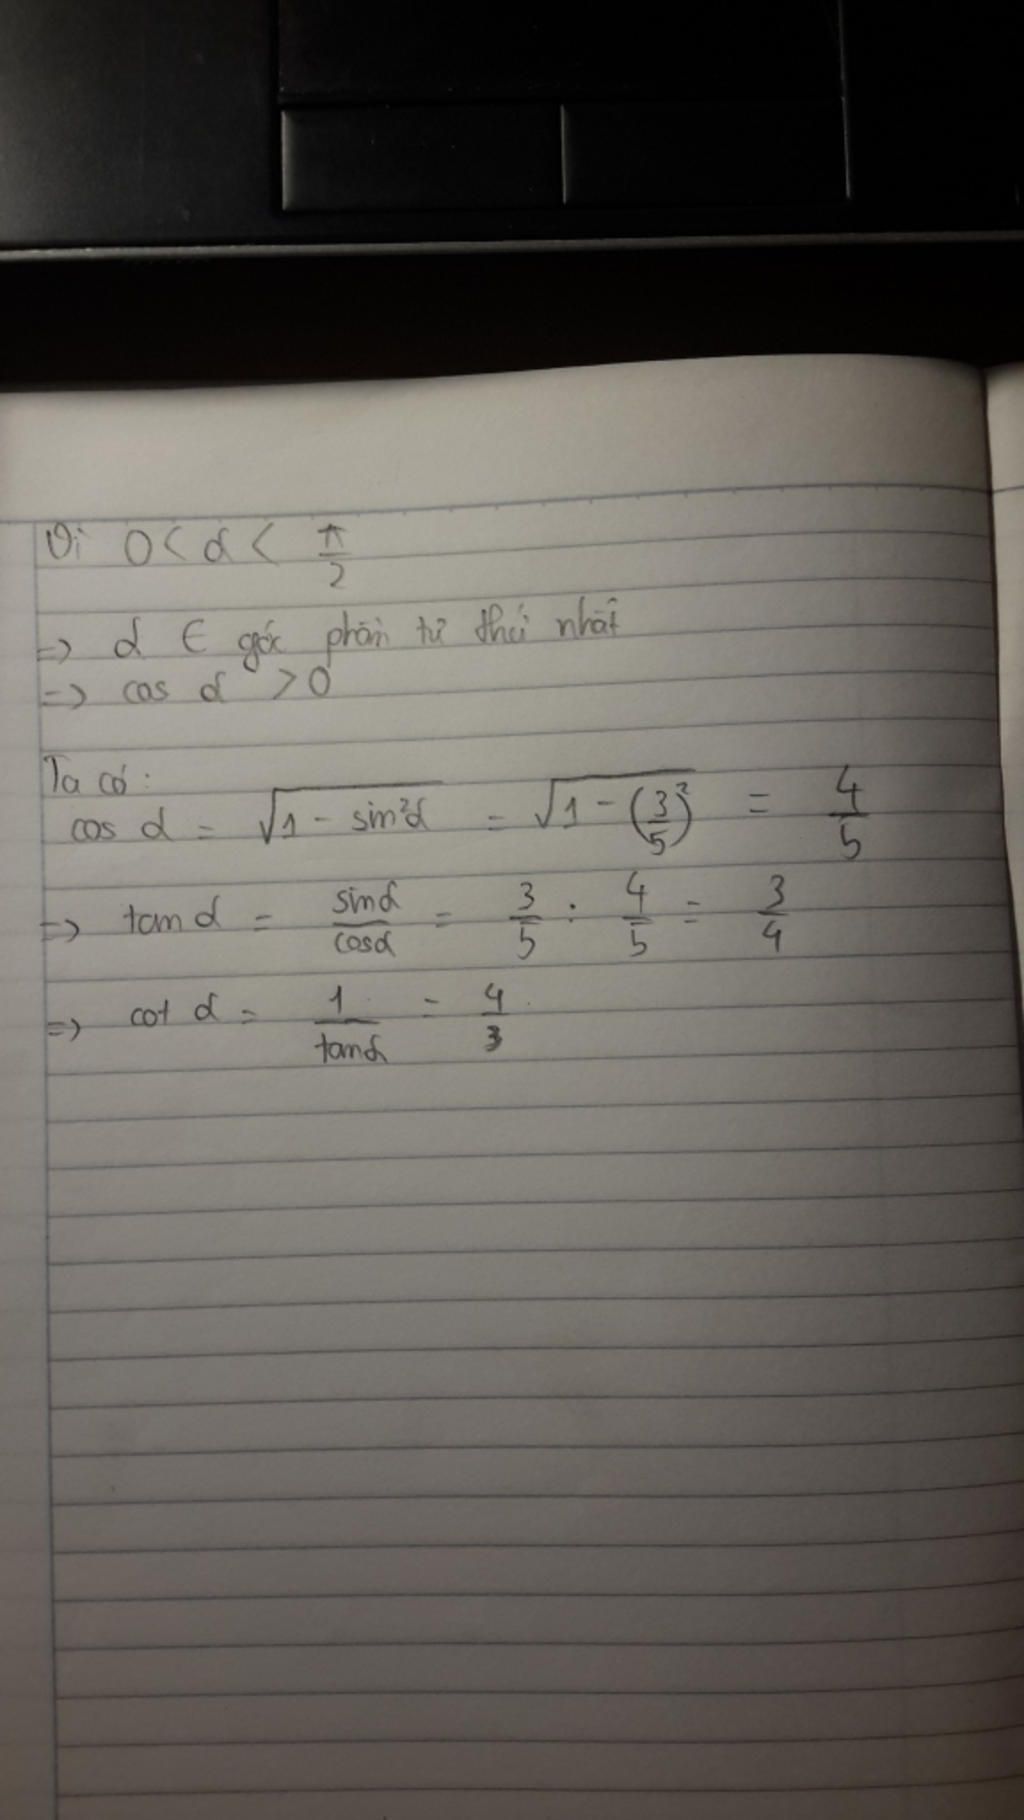 Vì 0 < α < π/2
=> α ∈ góc phần tư thứ nhất
=> cos α > 0
Ta có:
cos α = √(1 - sin²α) = √(1 - (3/5)²) = 4/5
=> tan α = sinα/cosα = 3/5 : 4/5 = 3/4
=> cot α = 1/tanα = 4/3